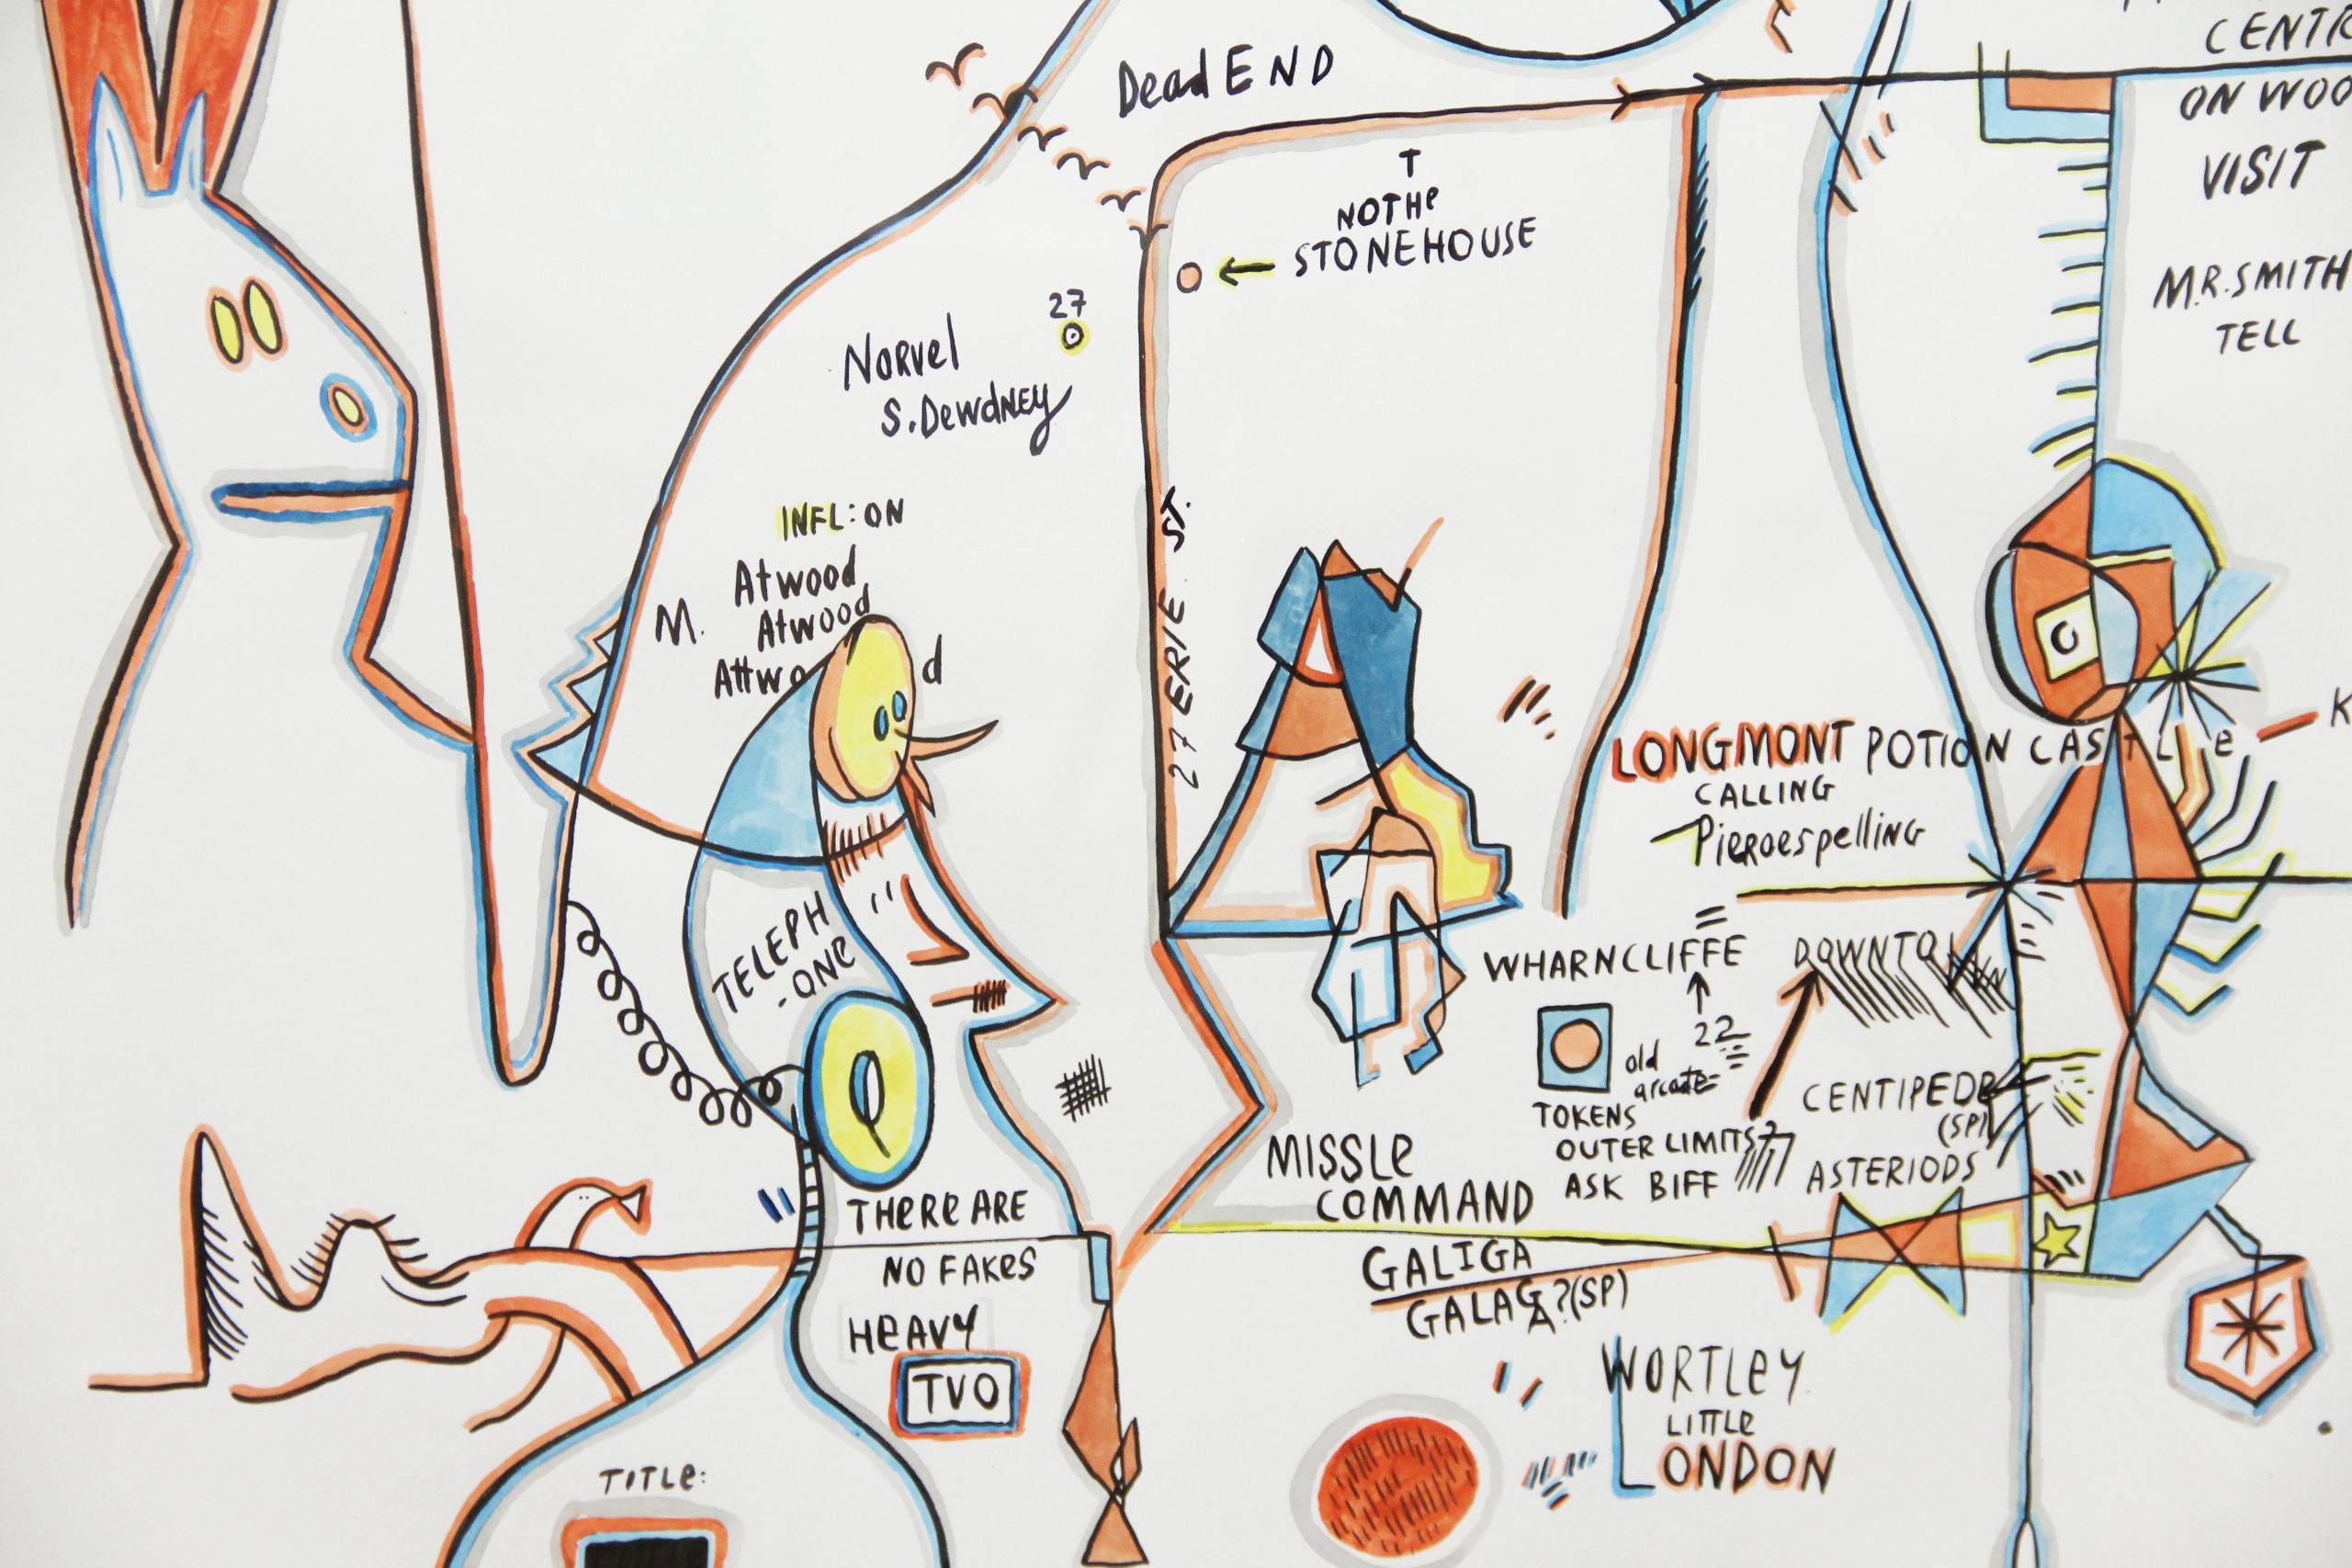 Dead END
CENTR
ON WOO
VISIT
M.R.SMITH
TELL
T
NOTHP
STONEHOUSE
27
NORVEl
S.DEWdNEY
INFL:ON
M.
Atwood
Atwood
Attwo d
27 ERIE ST.
LONGMONT POTION CASTLe - K
CALLING
PieRoespelling
TELEPH
-ONe
WHARNCLIFFE
DOWNTO
22
old
arcade
TOKENS
OUTER LIMITS?
ASK BIFF
CENTIPEDE
(SP)
ASTERIODS
MISSLe
COMMAND
THeRe ARE
NO FAKes
HeAVY
TVO
GALIGA
GALAGA?(SP)
WORTLeY
LITTLe
LONDON
TITLe: